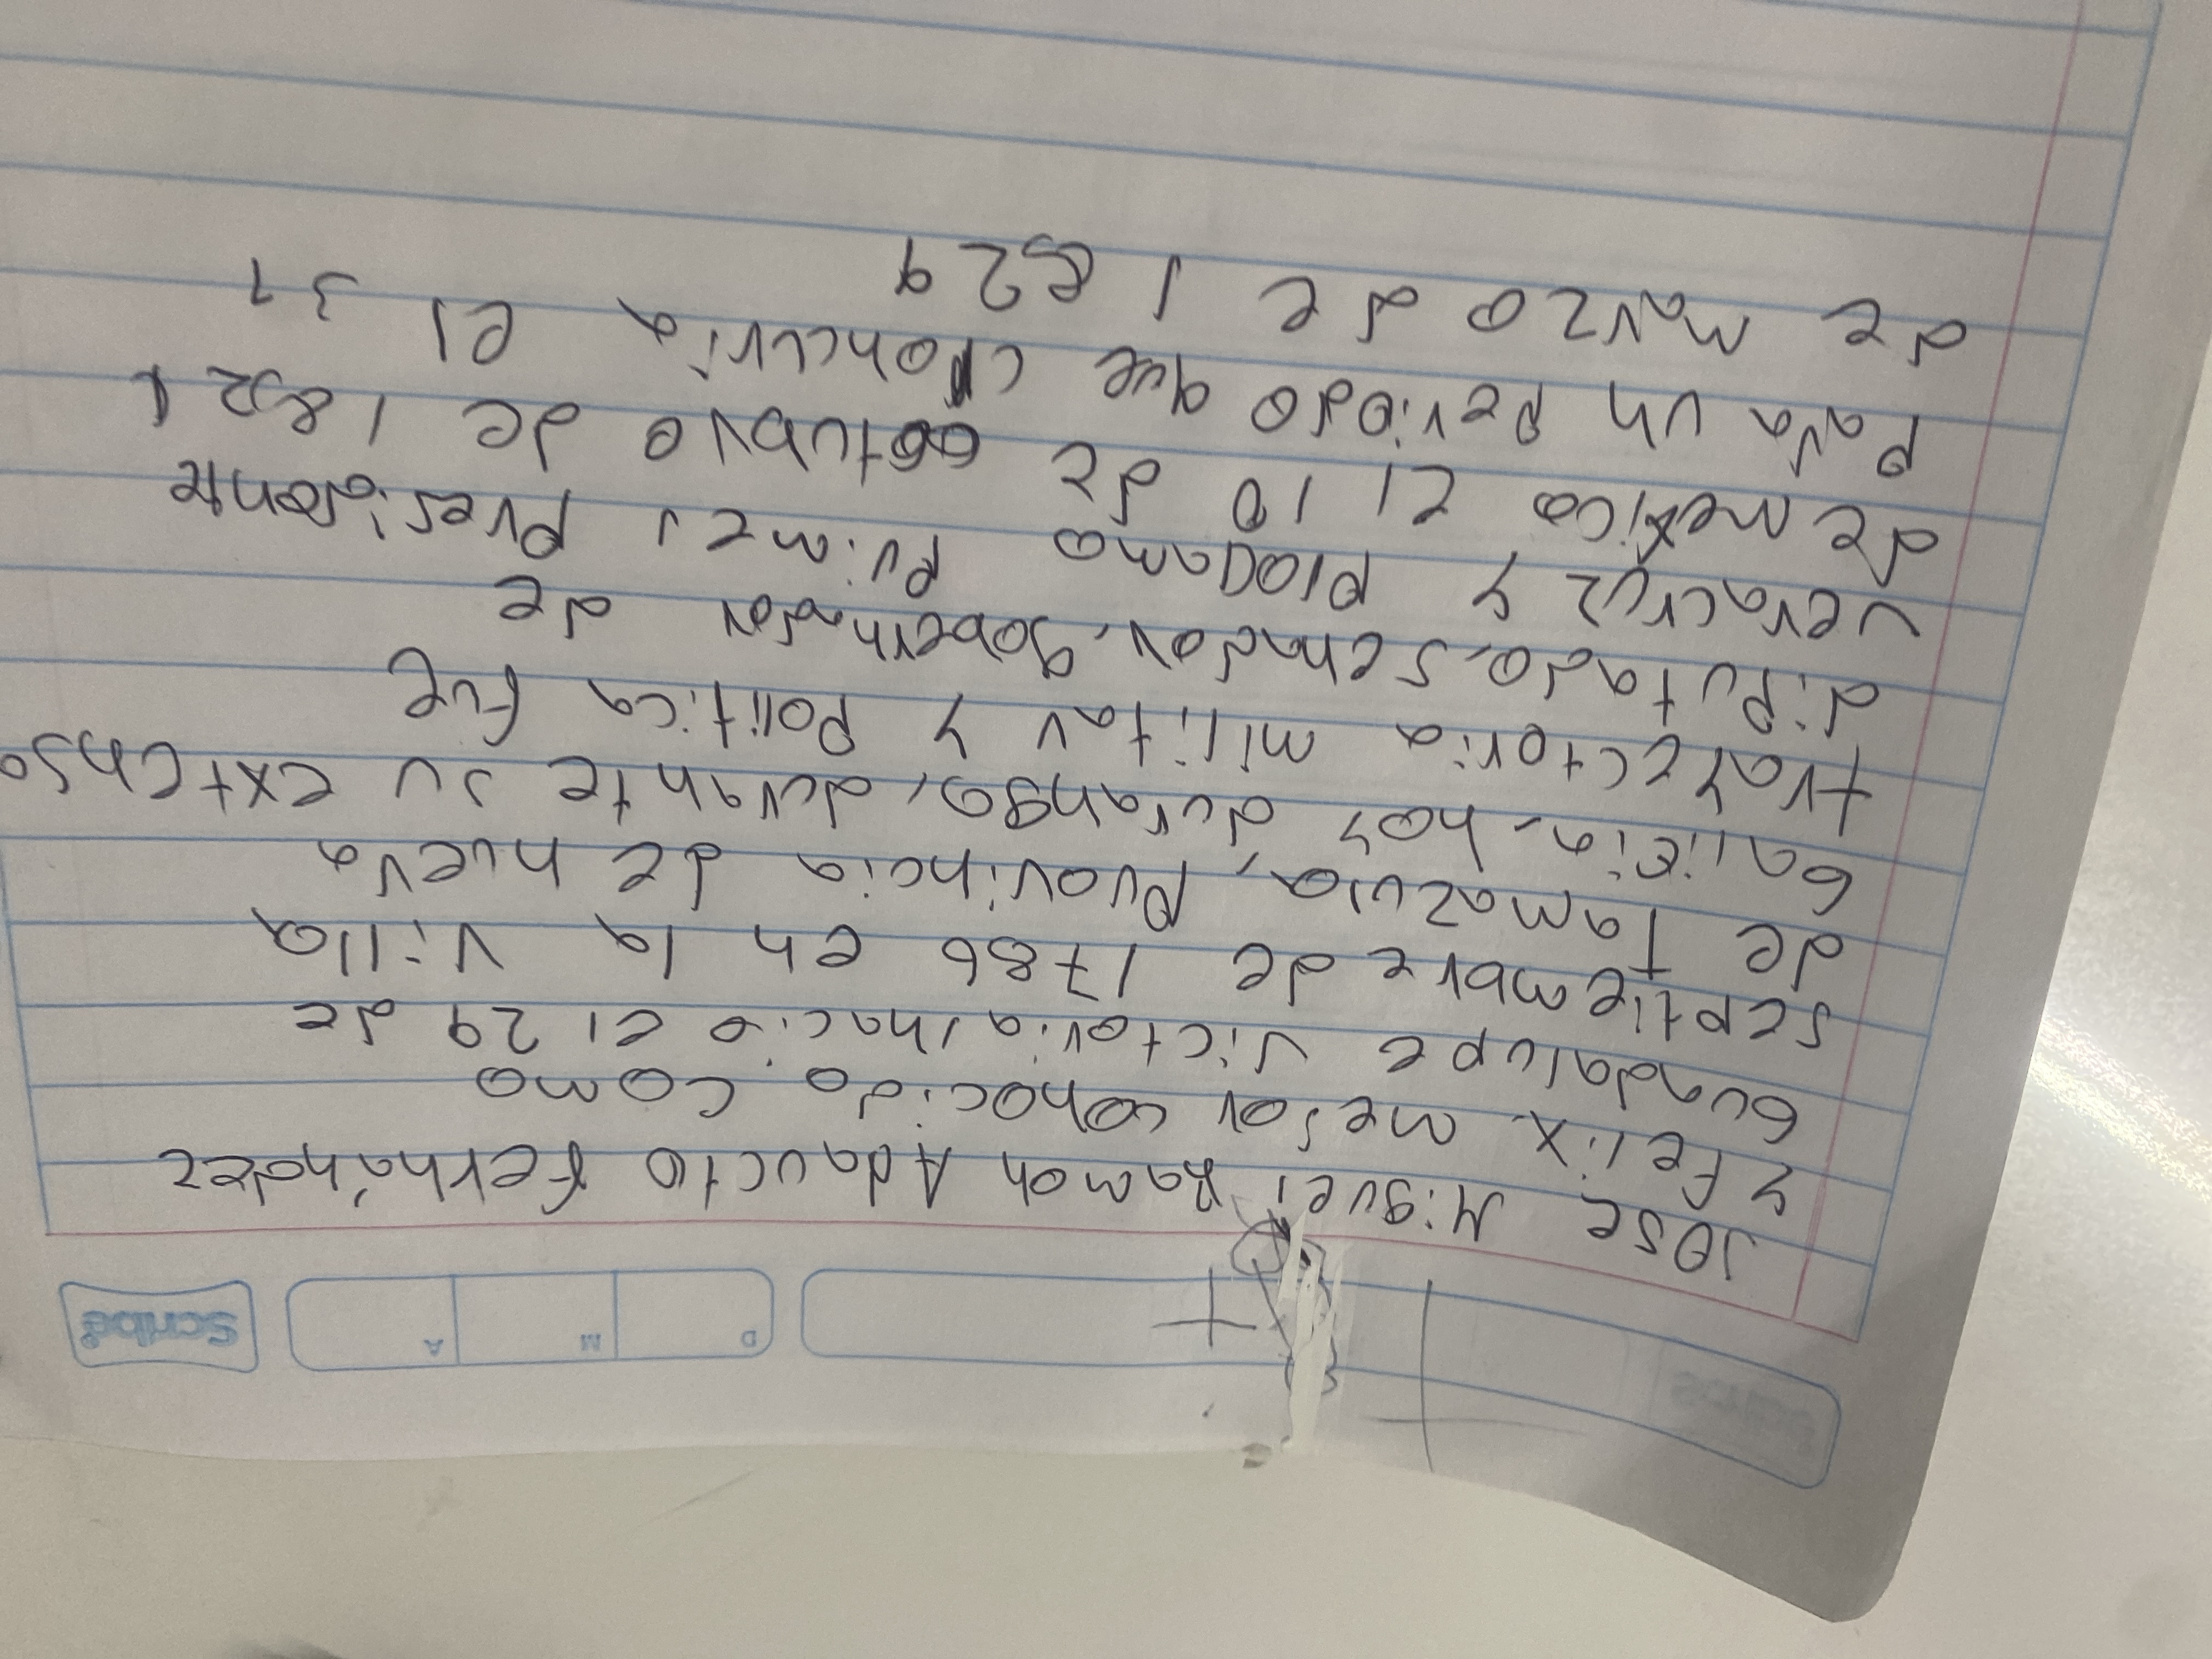 D M A Scribe
Jose Miguel Ramon Adaucto Fernandez
y Felix mejor conocido como
Guadalupe Victoria, nacio el 29 de
septiembre de 1786 en la villa
de Tamazula, provincia de nueva
Galicia, hoy durango, durante su extenso
trayectoria militar y politica fue
diputado, senador, gobernador de
veracruz y ploclamo primer presidente
de mexico El 10 de octubro de 1824
para un periodo que cloncuria el 31
de marzo de 1829